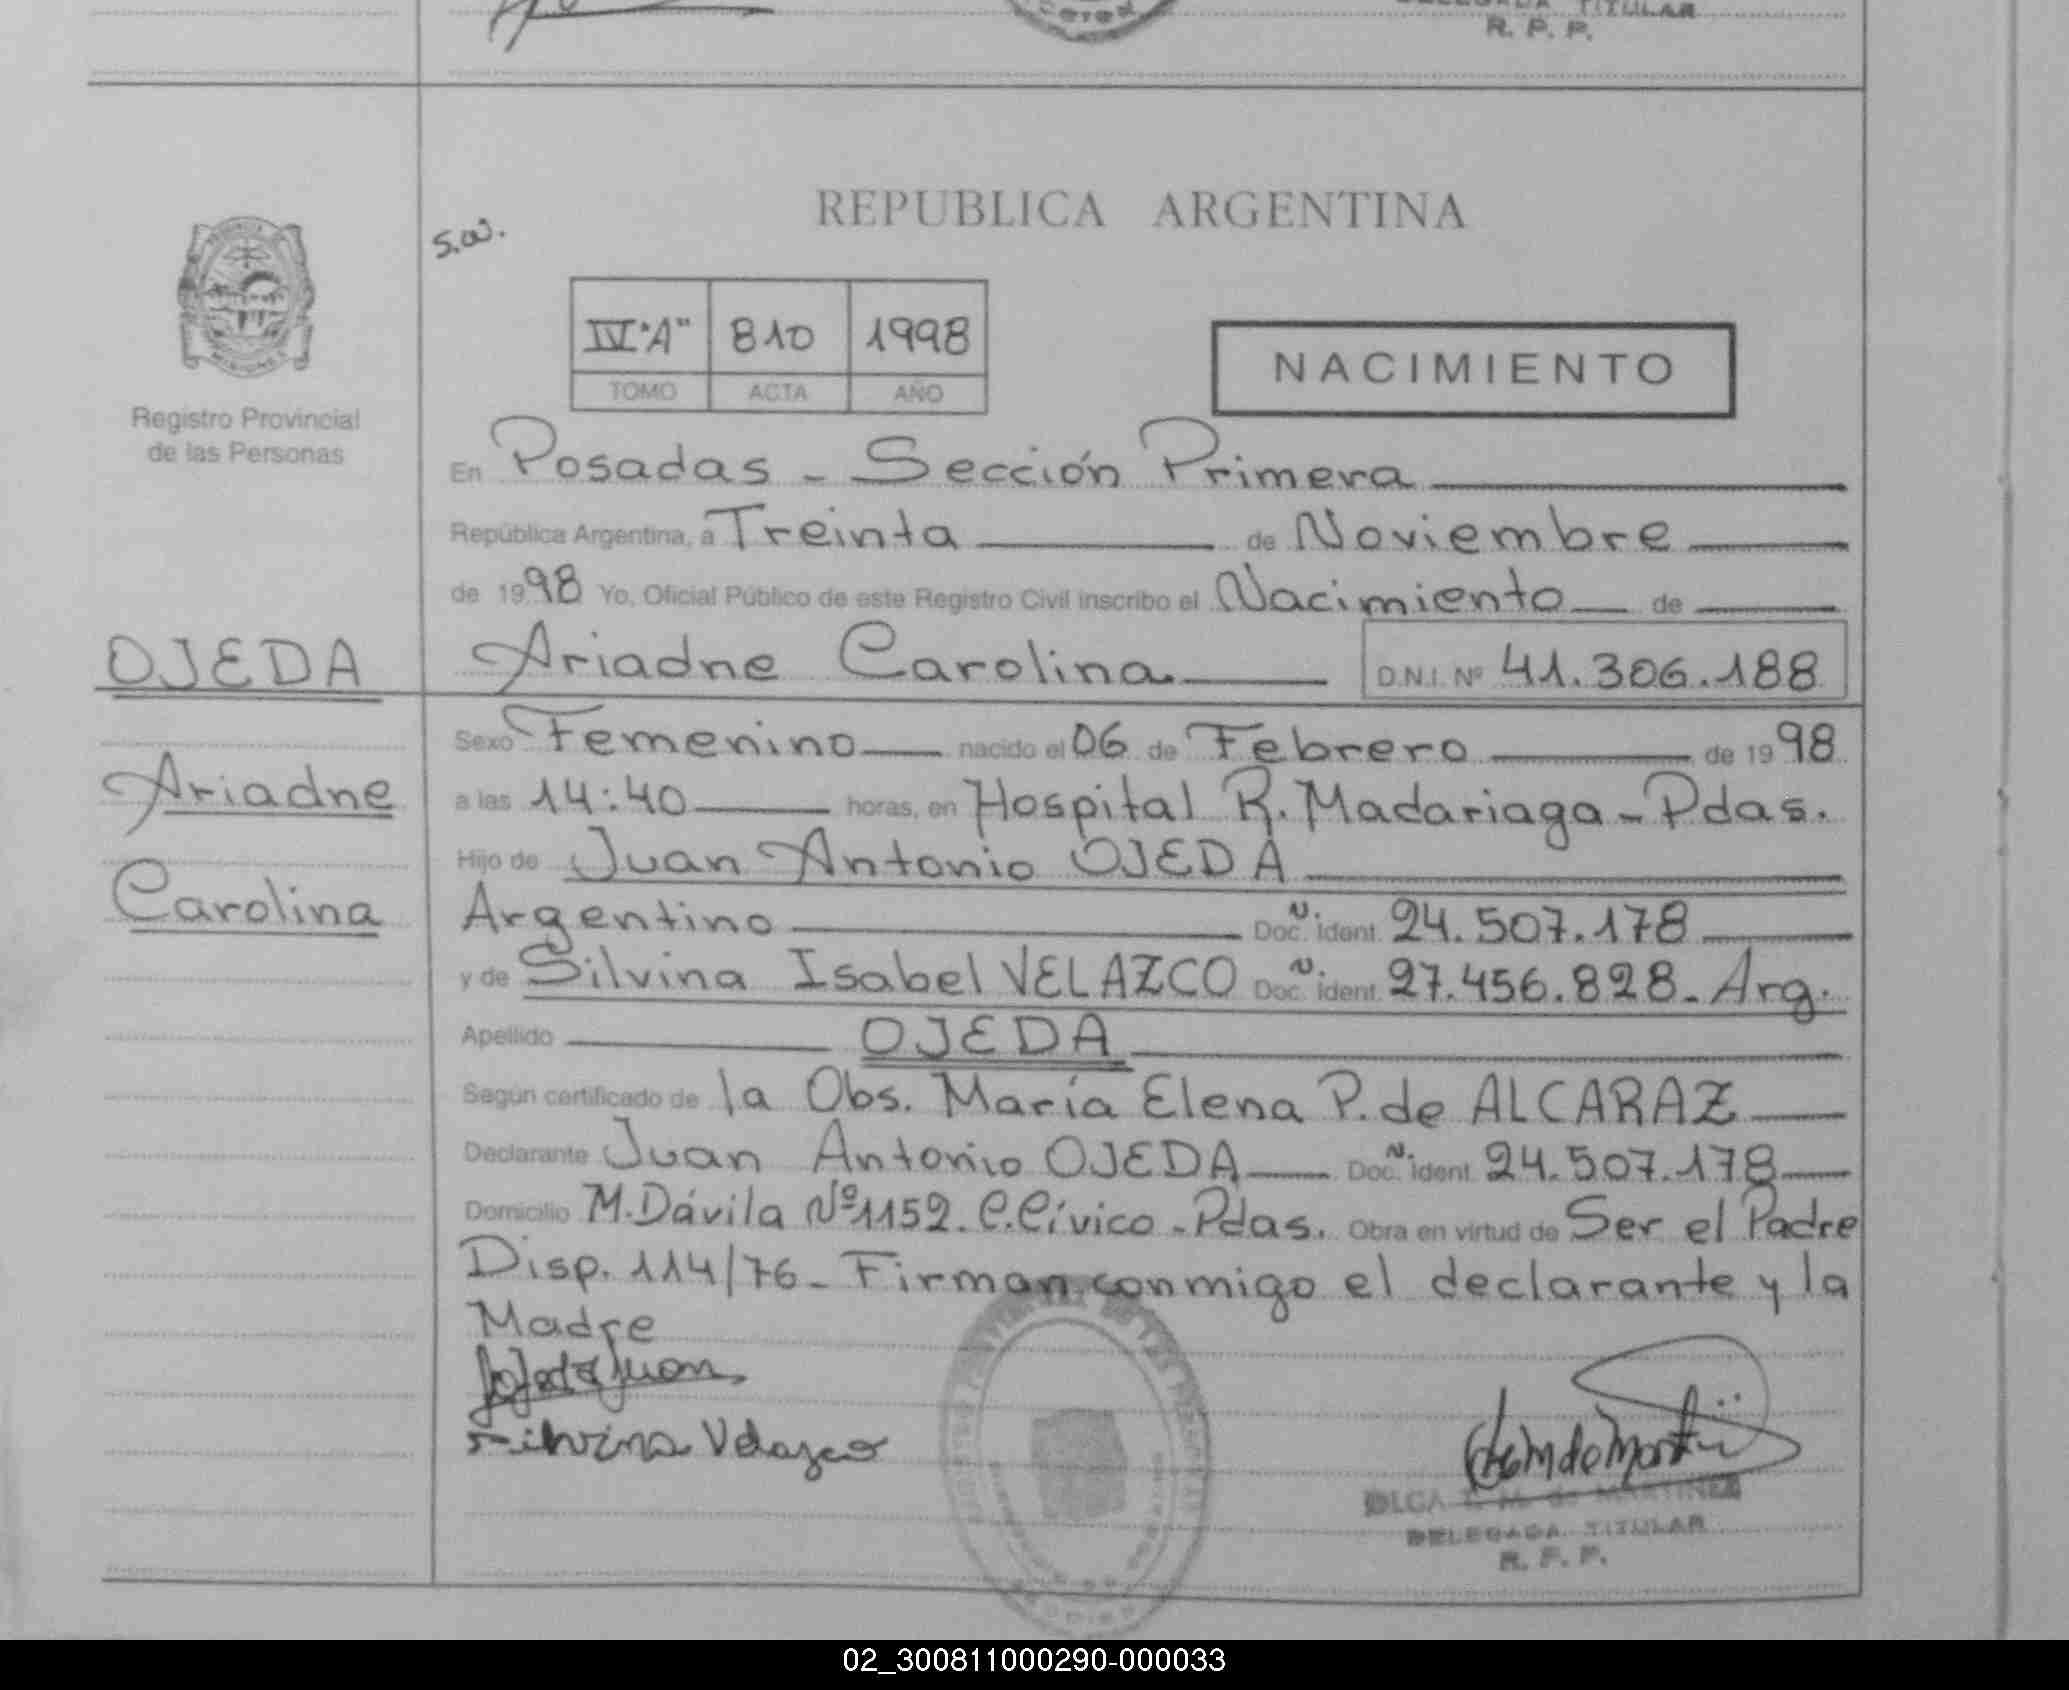 DELEGADA TITULAR
R. P. P.
REPUBLICA ARGENTINA
s.w.
IV "A" 810 1998
TOMO ACTA AÑO
NACIMIENTO
MISIONES
Registro Provincial
de las Personas
En Posadas - Sección Primera
República Argentina, a Treinta de Noviembre
de 1998 Yo, Oficial Público de este Registro Civil inscribo el Nacimiento de
OJEDA
Ariadne Carolina D.N.I. Nº 41.306.188
Sexo Femenino nacido el 06 de Febrero de 1998
Ariadne
a las 14:40 horas, en Hospital R. Madariaga - Pdas.
Hijo de Juan Antonio OJEDA
Carolina
Argentino Doc. ident. 24.507.178
y de Silvina Isabel VELAZCO Doc. ident. 27.456.828 - Arg.
Apellido OJEDA
Según certificado de la Obs. María Elena P. de ALCARAZ
Declarante Juan Antonio OJEDA Doc. ident. 24.507.178
Domicilio M. Dávila Nº 1152. C. Cívico - Pdas. Obra en virtud de Ser el Padre
Disp. 114/76 - Firman conmigo el declarante y la
Madre
Ojeda Juan
Silvina Velazco
OLGA E. M. de MARTINEZ
DELEGADA TITULAR
R. P. P.
02_300811000290-000033